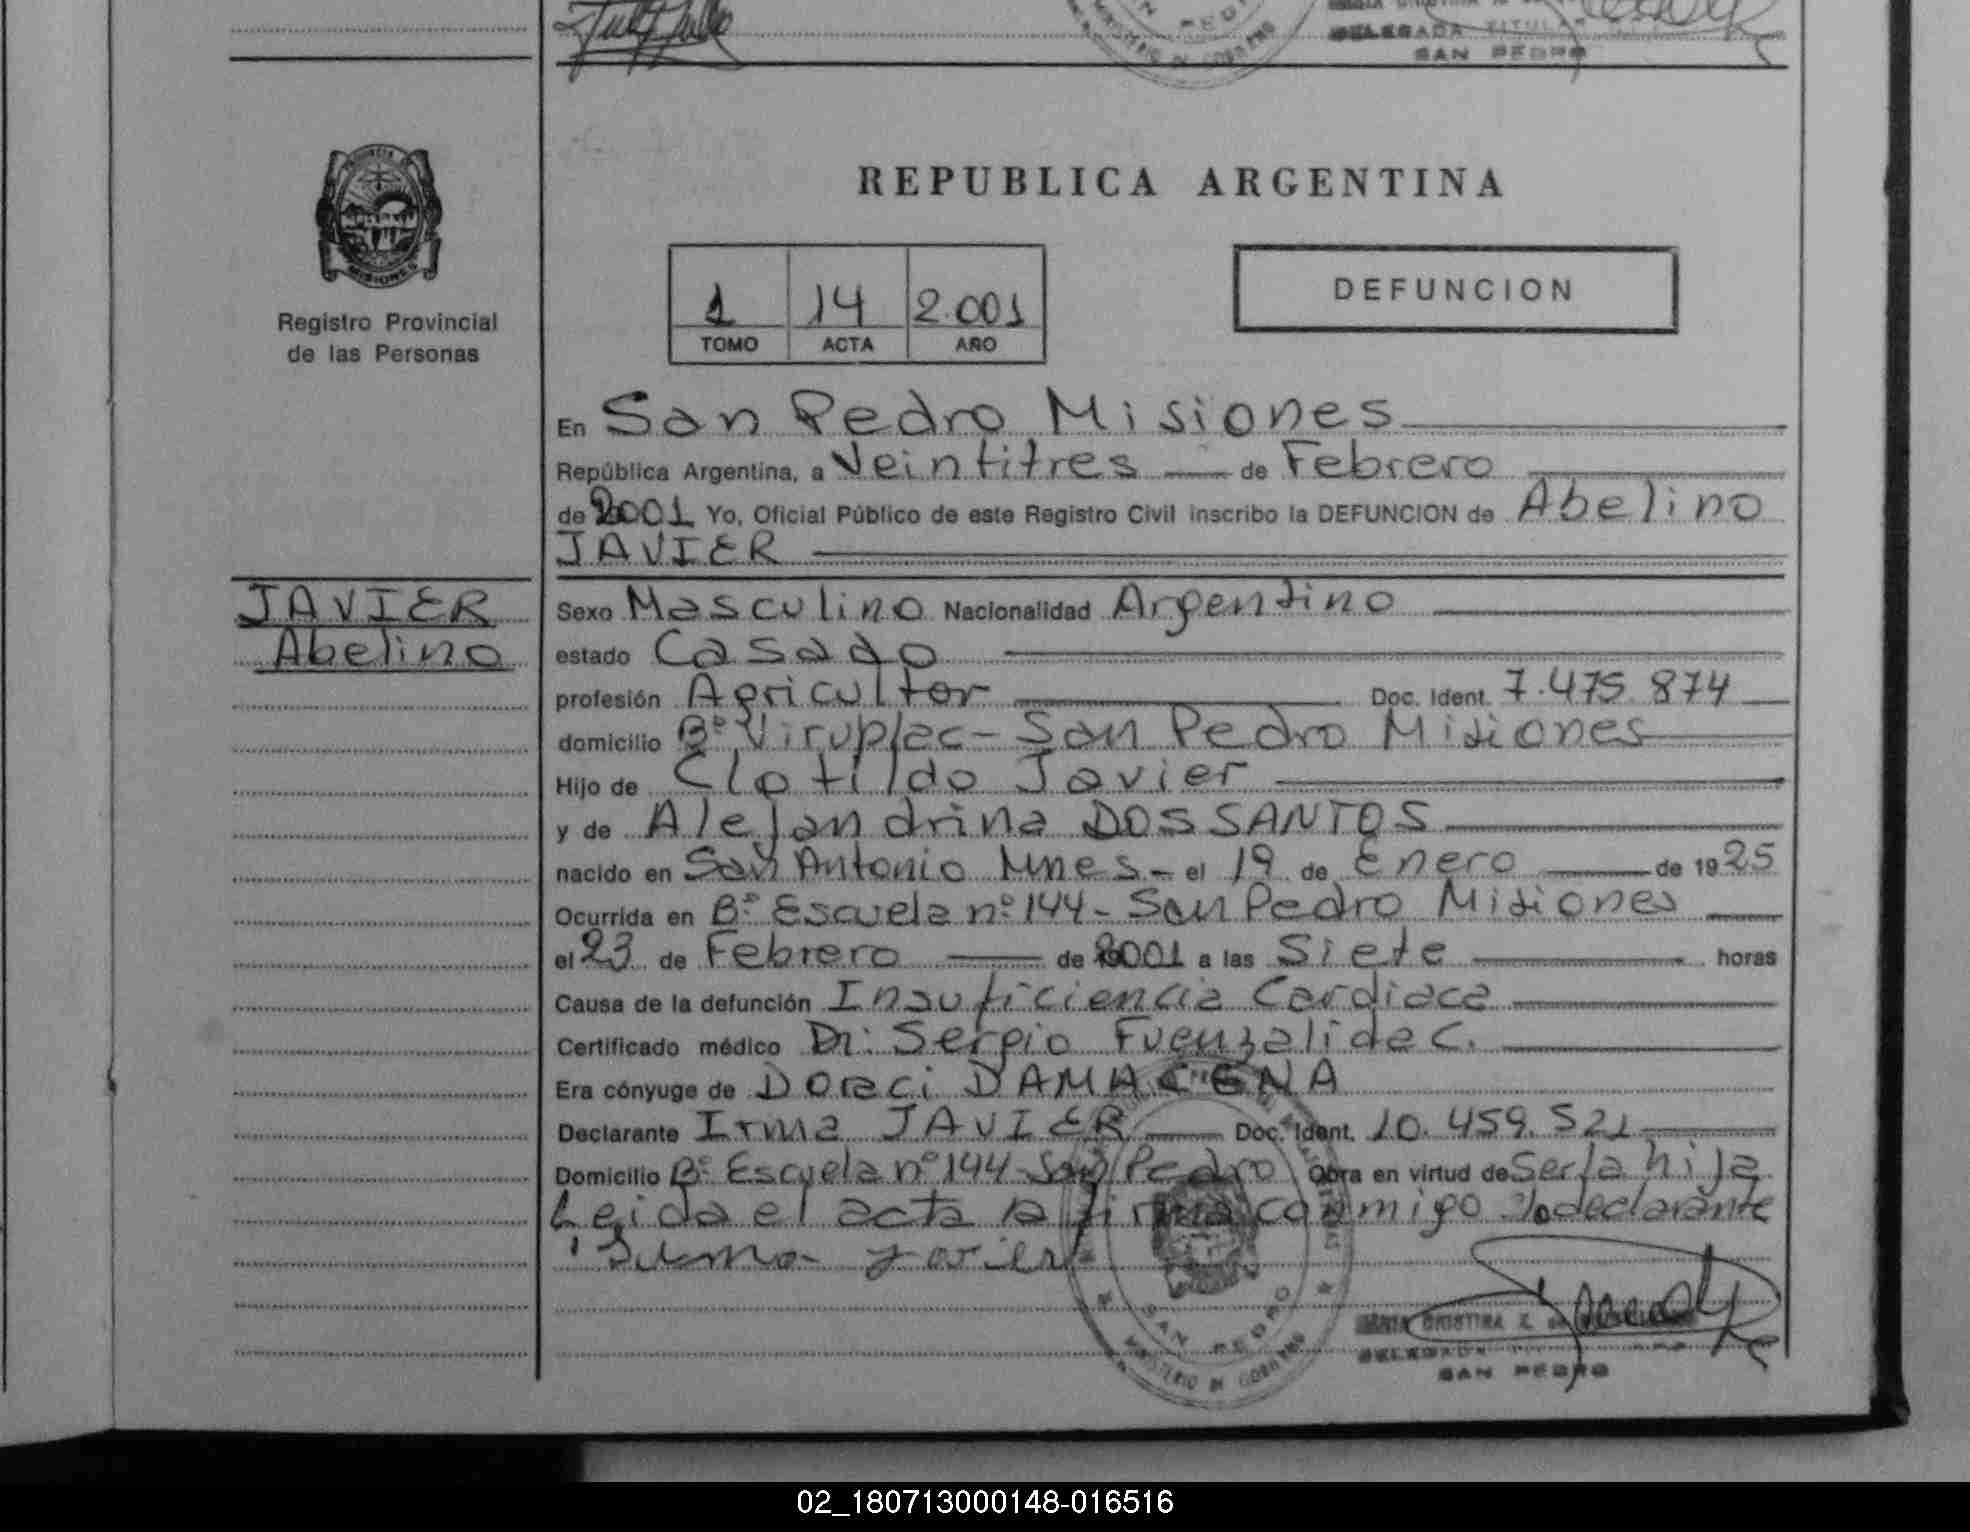 DELEGADA TITULAR
SAN PEDRO
PROVINCIA DE
MISIONES
Registro Provincial
de las Personas
REPUBLICA ARGENTINA
1 14 2.001
TOMO ACTA AÑO
DEFUNCION
En San Pedro Misiones
República Argentina, a Veintitres de Febrero
de 2001 Yo, Oficial Público de este Registro Civil inscribo la DEFUNCION de Abelino
JAVIER
JAVIER
Abelino
Sexo Masculino Nacionalidad Argentino
estado Casado
profesión Agricultor Doc. Ident. 7.475.874
domicilio Bº Viruplac - San Pedro Misiones
Hijo de Clotildo Javier
y de Alejandrina DOS SANTOS
nacido en San Antonio Mnes - el 19 de Enero de 1925
Ocurrida en Bº Escuela nº 144 - San Pedro Misiones
el 23 de Febrero de 2001 a las Siete horas
Causa de la defunción Insuficiencia Cardiaca
Certificado médico Dr: Sergio Fuenzalida C.
Era cónyuge de Doraci DAMACENA
Declarante Irma JAVIER Doc. Ident. 10.459.521
Domicilio Bº Escuela nº 144 San Pedro Obra en virtud de Ser la hija
Leida el acta la firma conmigo declarante
Irma Javier
SAN PEDRO
MINISTERIO DE GOBIERNO
CRISTINA
DELEGADA
SAN PEDRO
02_180713000148-016516